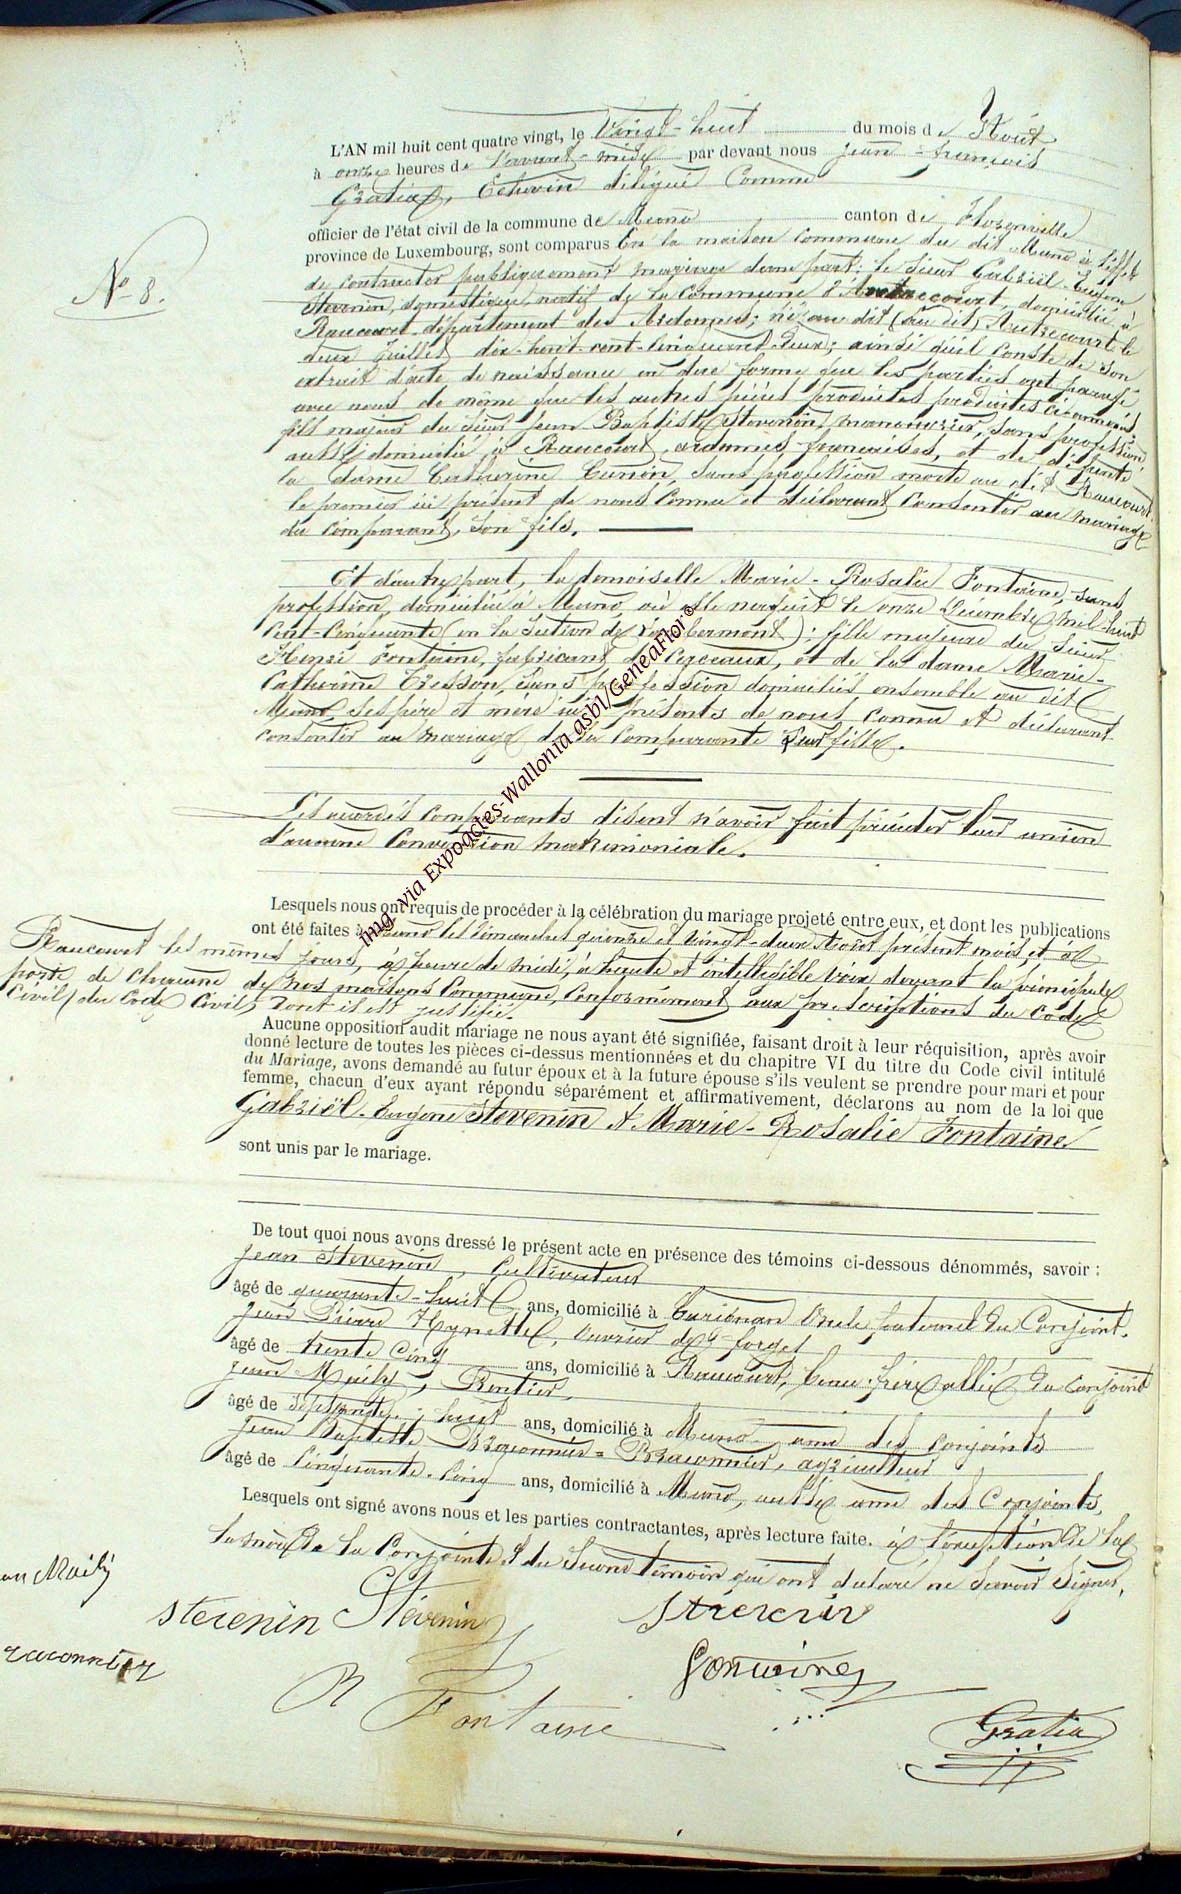 L'AN mil huit cent quatre vingt, le Vingt-huit du mois d'Août
à onze heures de l'avant-midi par devant nous Jean-françois
Gratia, Echevin délégué Comme
officier de l'état civil de la commune de Muno canton de Florenville
province de Luxembourg, sont comparus En la maison commune du dit Muno à l'effet
N° 8.
de contracter publiquement mariage d'une part: le Sieur Gabriël-Eugène
Stevenin, domestique, natif de la Commune d'Autrecourt, domicilié à
Raucourt département des Ardennes; né au dit (au dit) Autrecourt le
deux Juillet dix-huit-cent-cinquante-deux; ainsi qu'il conste de son
extrait d'acte de naissance en due forme que les parties ont paraphé
avec nous de même que les autres pièces produites produites ci-annexés
fils majeur du Sieur Jean Baptiste Stevenin, manouvrier, sans profession,
aussi domicilié à Raucourt, ardennes-françaises, et de défunte
la dame Catherine Cunin, sans profession morte au dit Raucourt,
le premier ici présent de nous connu et déclarant Consentir au mariage
du comparant, son fils.
Et d'autre part, la demoiselle Marie-Rosalie Fontaine, sans
profession, domiciliée à Muno, où elle naquit le onze Décembre mil-huit
Cent-Cinquante (en la Section de ); fille majeure du Sieur
Henri Fontaine, fabricant de Cerceaux, et de la dame Marie-
Catherine Tresson, sans profession domiciliés ensemble au dit
Muno, ses père et mère ici présents de nous connu et déclarant
consentir au mariage de la Comparante leur fille.
Les susdits comparants disent n'avoir fait précéder leur union
d'aucune Convention matrimoniale.
Lesquels nous ont requis de procéder à la célébration du mariage projeté entre eux, et dont les publications
ont été faites à Muno les dimanches quinze et vingt-deux Août présent mois, et à
Raucourt les mêmes jours, à heure de midi, à haute et intelligible voix, devant la principale
porte de chacune de nos maisons Communes, Conformément aux prescriptions du Code
Civil, (du Code Civil) dont il est justifié.
Aucune opposition audit mariage ne nous ayant été signifiée, faisant droit à leur réquisition, après avoir
donné lecture de toutes les pièces ci-dessus mentionnées et du chapitre VI du titre du Code civil intitulé
du Mariage, avons demandé au futur époux et à la future épouse s'ils veulent se prendre pour mari et pour
femme, chacun d'eux ayant répondu séparément et affirmativement, déclarons au nom de la loi que
Gabriël-Eugène Stevenin & Marie-Rosalie Fontaine
sont unis par le mariage.
De tout quoi nous avons dressé le présent acte en présence des témoins ci-dessous dénommés, savoir :
Jean Stevenin, Cultivateur
âgé de quarante-huit ans, domicilié à Carignan Oncle paternel du Conjoint.
Jean Pierre, Ouvrier de forges
âgé de trente Cinq ans, domicilié à Raucourt, beau-frère allié du Conjoint
Jean Mailly, Rentier,
âgé de Septante-huit ans, domicilié à Muno ami des conjoints
Jean Baptiste Braconnier-Braconnier, agriculteur
âgé de Cinquante-Cinq ans, domicilié à Muno, aussi ami des Conjoints,
Lesquels ont signé avons nous et les parties contractantes, après lecture faite. à l'exception de la
la mère de la Conjointe & du Second témoin qui ont déclaré ne Savoir Signer.
Stevenin Stévenin
R Fontaine
Fontaine
Gratia
img via Expoactes-Wallonia asbl/GeneaFlor©